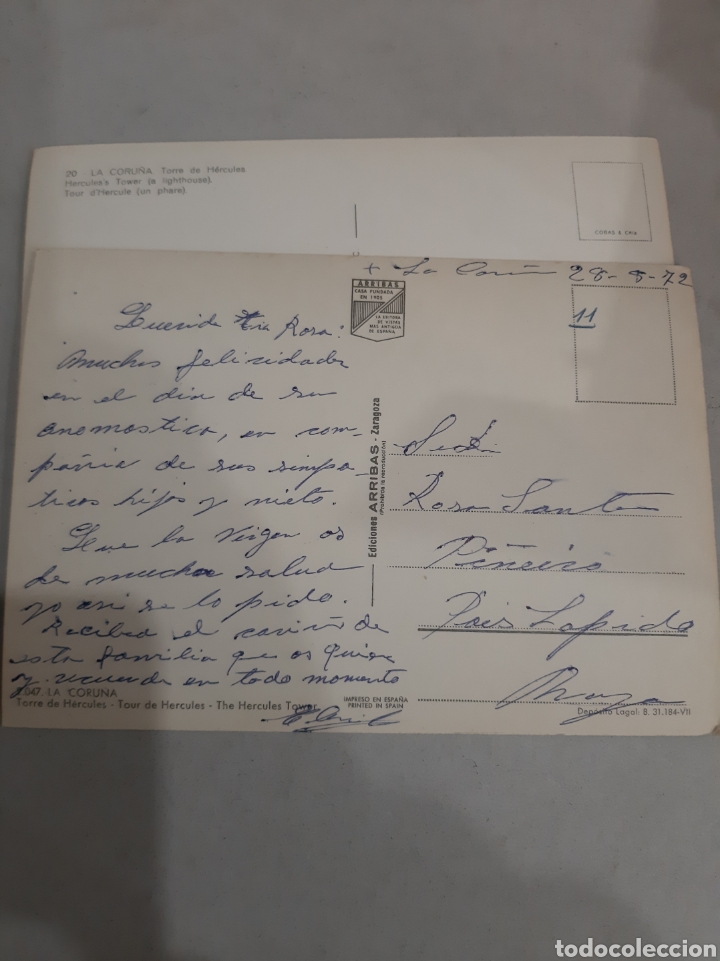 20 LA CORUÑA. Torre de Hércules.
Hercules's Tower (a lighthouse).
Tour d'Hercule (un phare).
COBAS & CRIA
+ La Coruña 28-8-72
ARRIBAS
CASA FUNDADA
EN 1905
LA EDITORA
DE VISTAS
MAS ANTIGUA
DE ESPAÑA
11
Querida tia Rosa:
muchas felicidades
en el dia de su
anomastico, en com-
pañia de sus simpa-
ticos hijos y nieto.
Que la Virgen os
de mucha salud
yo asi se lo pido.
Reciban el cariño de
esta familia que os quiere
y recuerda en todo momento
Ediciones ARRIBAS - Zaragoza
(Prohibida la reproducción)
Rosa Santos
Piñeiro
Lapido
.047.-LA CORUÑA
Torre de Hércules - Tour de Hercules - The Hercules Tower
IMPRESO EN ESPAÑA
PRINTED IN SPAIN
Depósito Legal: B. 31.184-VII
todocoleccion